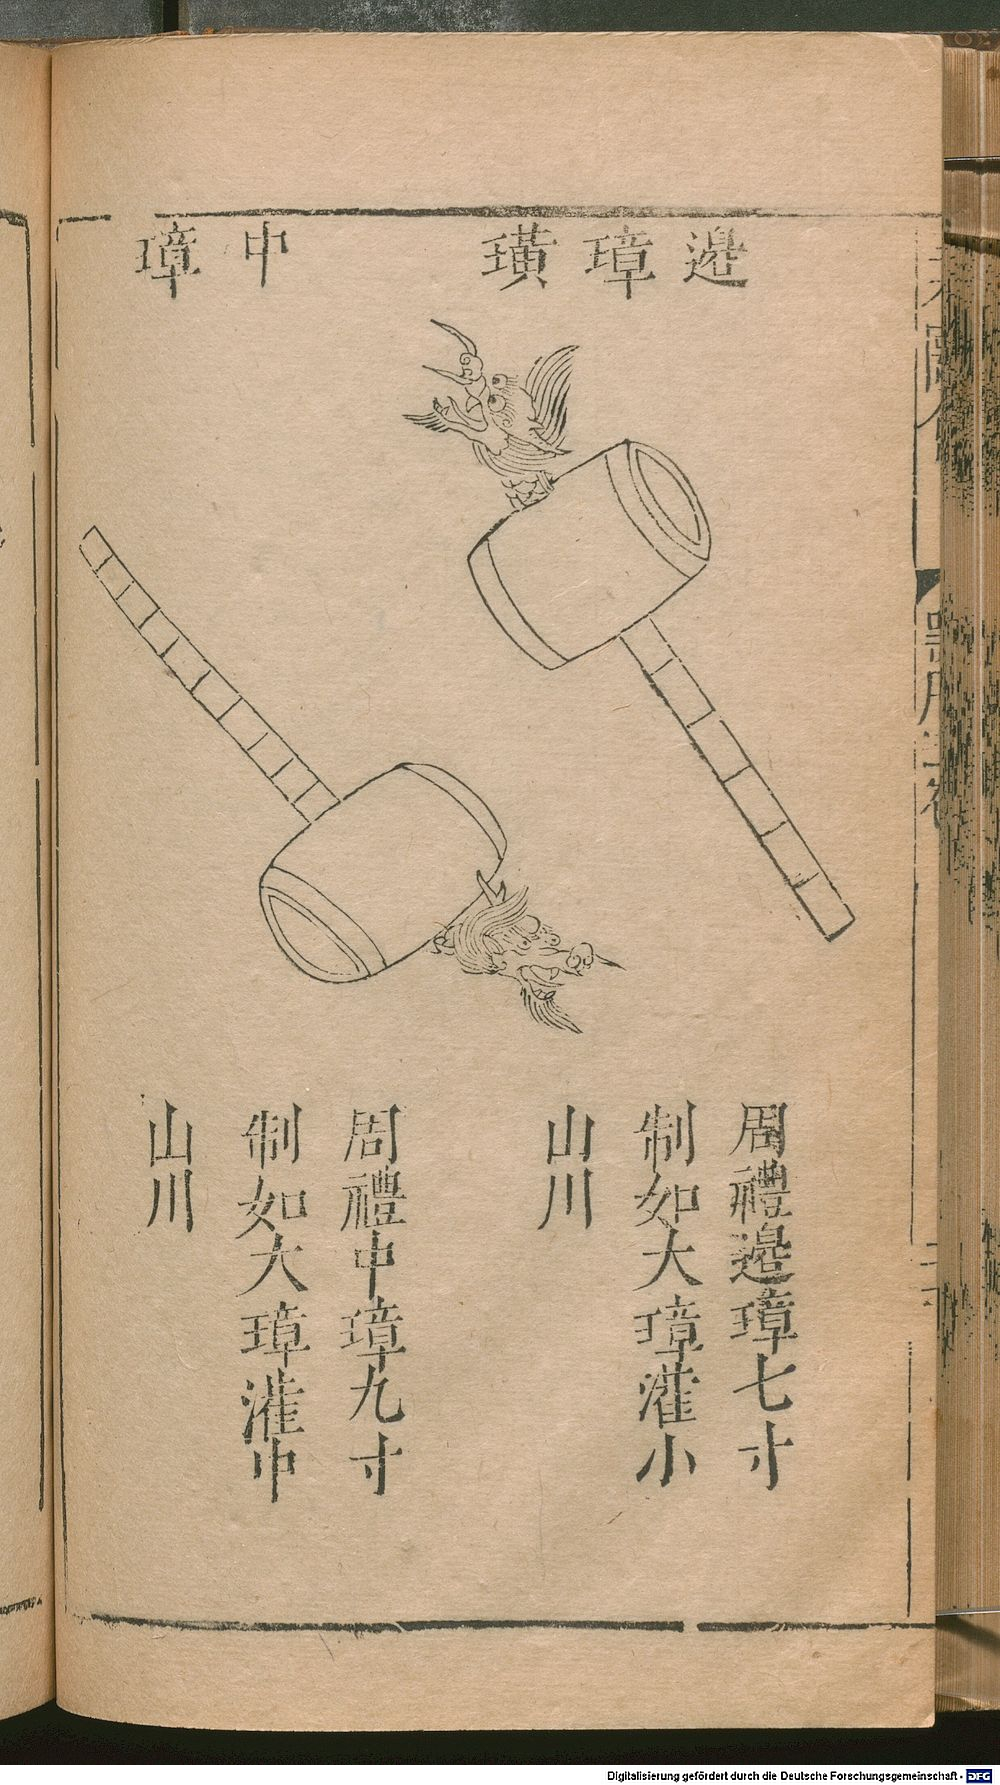 邊璋璜
周禮邊璋七寸
制如大璋灌小
山川
中璋
周禮中璋九寸
制如大璋灌中
山川
Digitalisierung gefördert durch die Deutsche Forschungsgemeinschaft - DFG